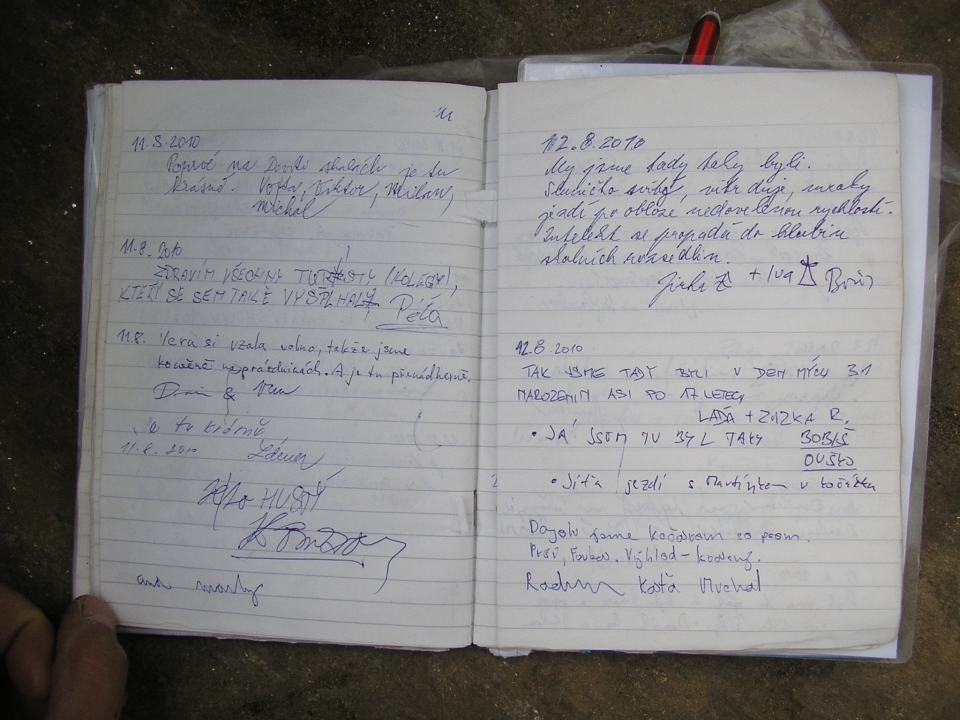 11.8.2010
Poprvé na skalách je tu
krásně. Vojta, Viktor, Milan,
Michal
11.8.2010
ZDRAVÍM VŠECHNY TURISTY (KOLEGY),
KTEŘÍ SE SEM TAKÉ VYŠPLHALY
Péťa
11.8. Verá si vzala volno, takže jsme
konečně na prázdninách. A je tu přenádherně.
&
Je tu krásně
11.8.2010
Je to HUSTÝ
12.8.2010
My jsme tady taky byli.
Sluníčko svítí, vítr duje, mraky
jezdí po obloze nedovolenou rychlostí.
Intelekt se propadá do hlubin
skalních rozsedlin.
Jirka + Iva Boris
12.8.2010
TAK JSME TADY BYLI V DEN MÝCH 31
NAROZENIN ASI PO 17 LETECH
LAĎA + ZUZKA R.
• JÁ JSEM TU BYL TAKY BOBIŠ
OUŠKO
• Jíťa jezdí s Martínkem v kočárku
Dojeli jsme
Prší, Foukáv. Výhled -
Radim Kosťa Michal